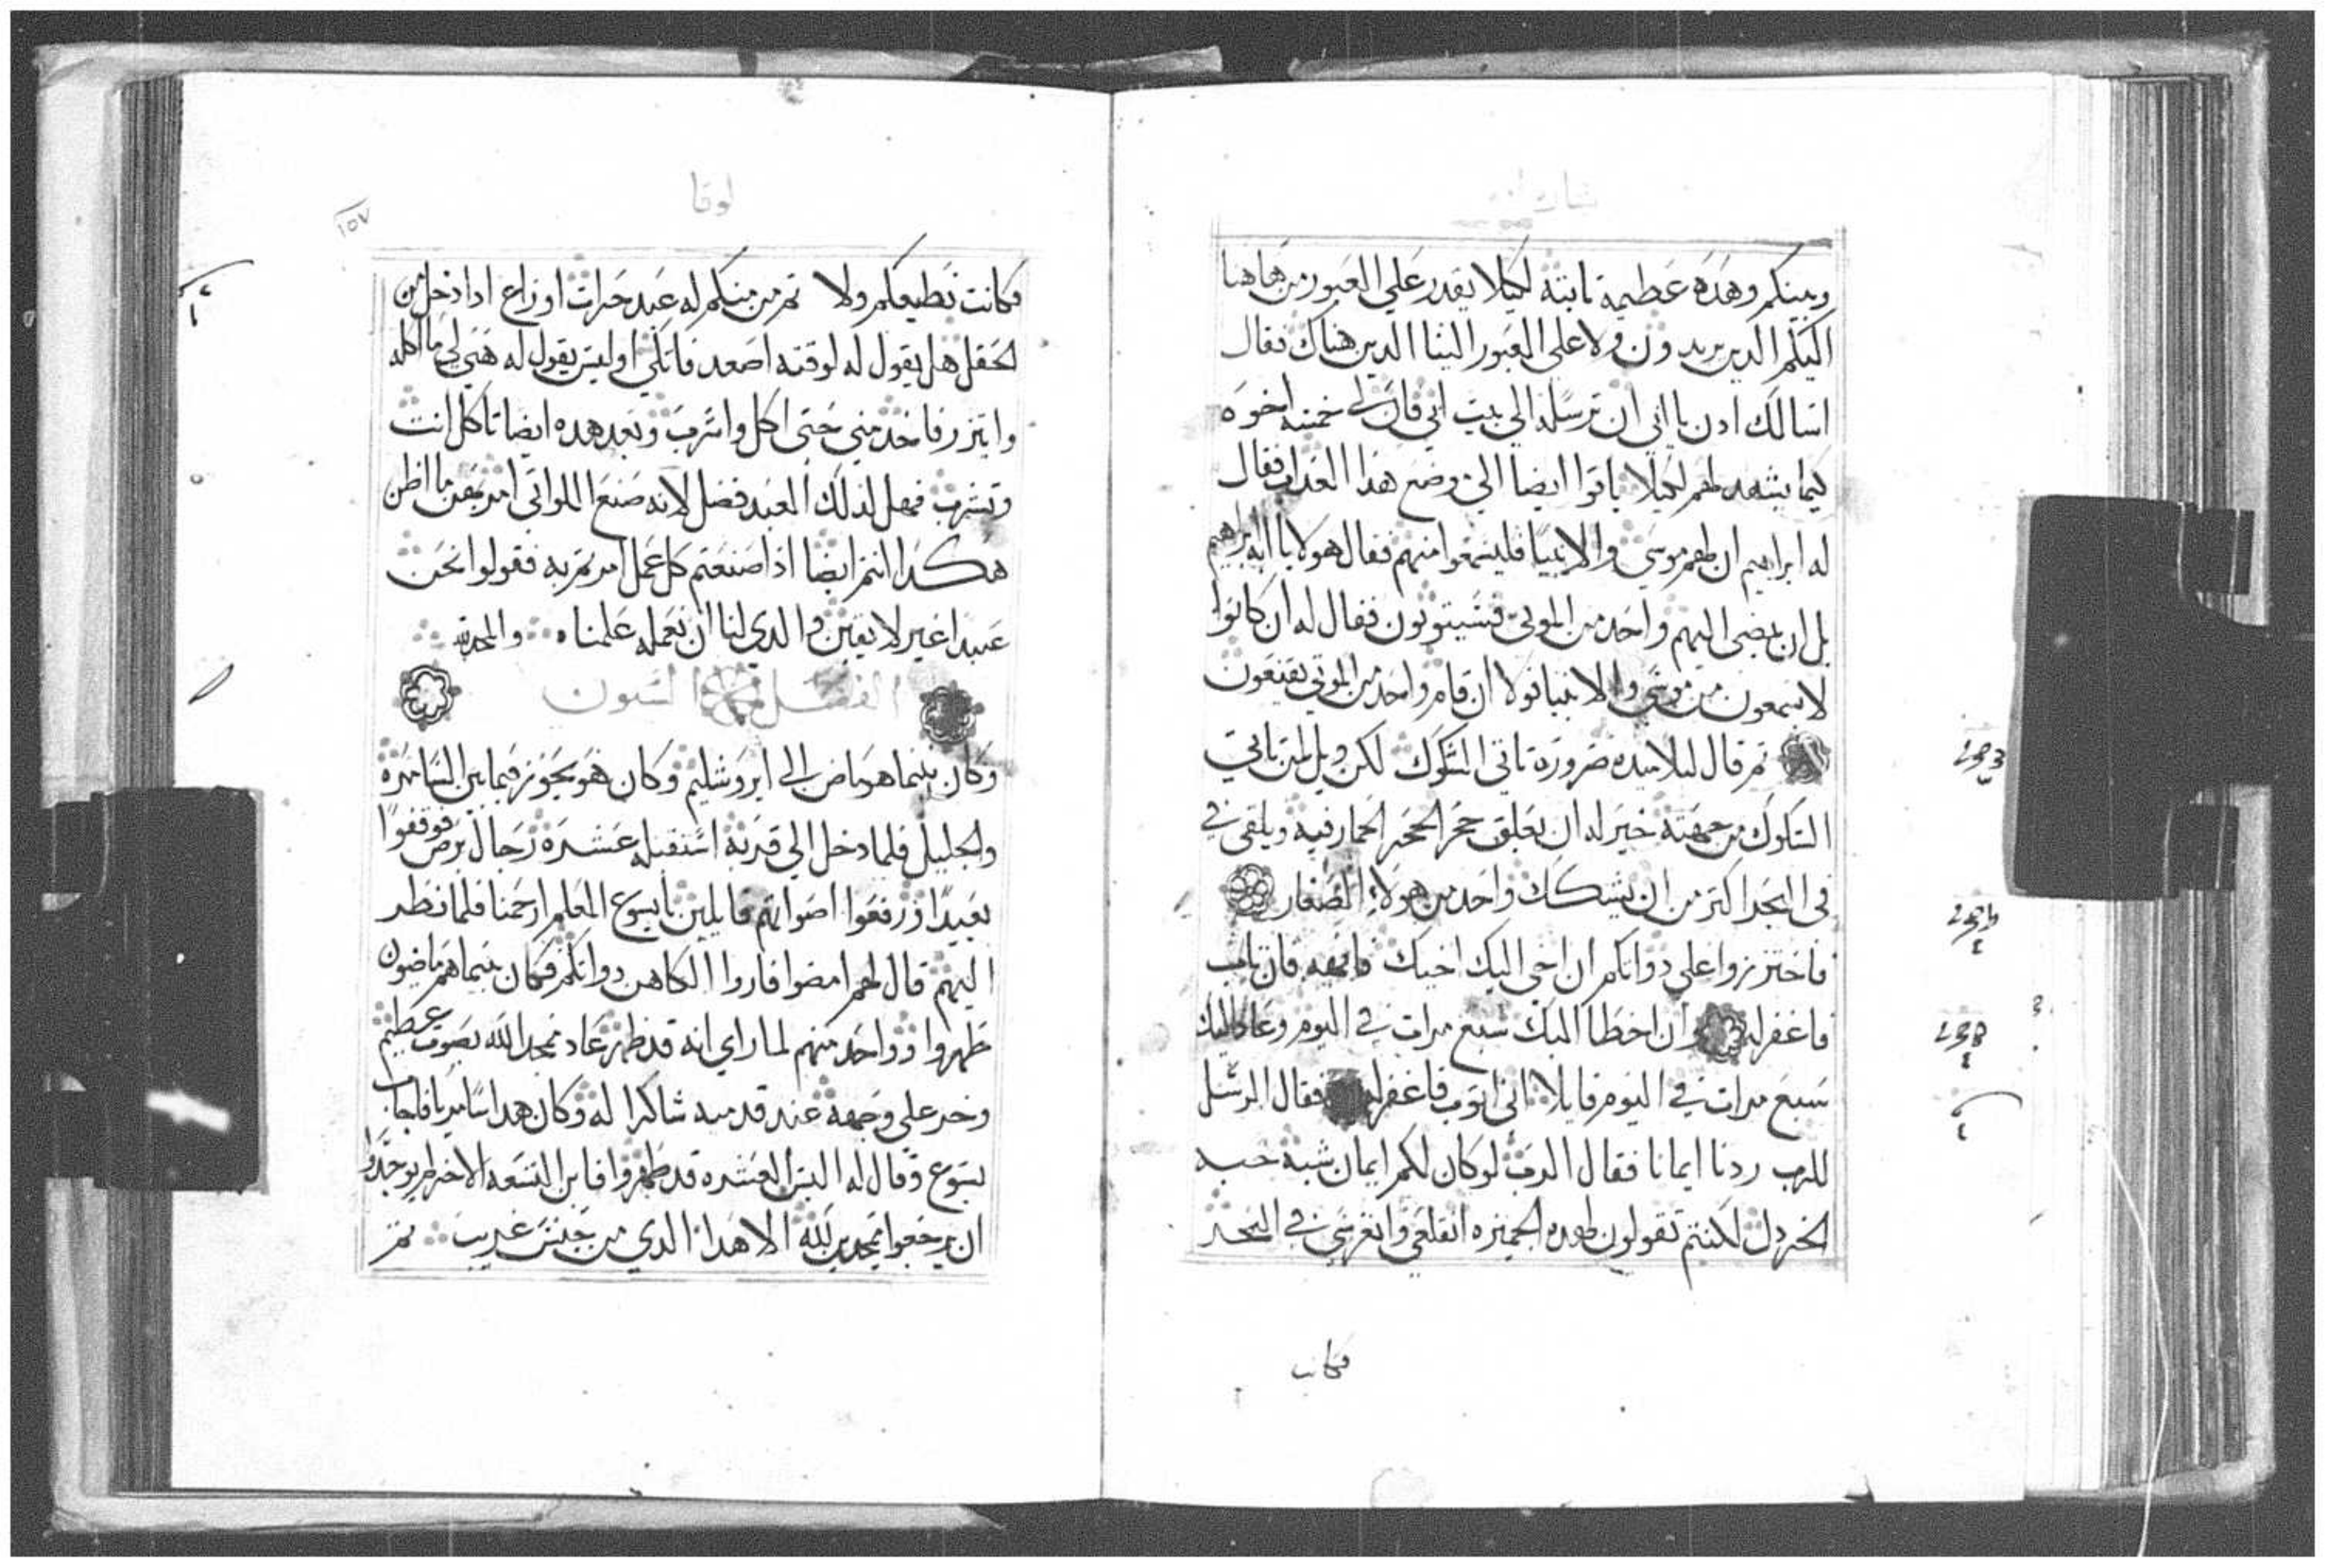 وبينكم وهده عظيمة ثابتة لكيلا يقدر علي العبور من هاهنا
اليكم الدين يريدون ولا علي العبور الينا الدين هناك فقال
اسالك ادن يا ابي ان ترسله الي بيت ابي فان لي خمسه اخوه
كيما يشهد لهم لكيلا ياتوا ايضا الي وضع هدا العداب فقال
له ابراهيم ان لهم موسي والانبيا فليسمعوا منهم فقال هو لا يا ابه ابراهيم
بل ان يمضي اليهم واحد من الموتي فسيتوبون فقال له ان كانوا
لا يسمعون من موسي والانبيا فولا ان قام واحد من الموتي يقنعون
تم قال لتلاميده ضرورة تاتي الشكوك لكن ويل لمن تاتي
الشكوك من جهته خير له ان يعلق حجر الحمار فيه ويلقي في
في البحر اكتر من ان يشكك واحد من هولاء الصغار
فاحترزوا علي دواتكم ان اخي اليك اخيك فانهه فان تاب
فاغفر له وان اخطا اليك سبع مرات في اليوم وعاد اليك
سبع مرات في اليوم قايلا اني اتوب فاغفر له فقال الرسل
للرب ردنا ايمانا فقال الرب لو كان لكم ايمان شبه حبه
الخردل لكنتم تقولون لهده الجميزه انقلعي وانغرسي في البحر
فكانت
لوقا
١٥٧
فكانت تطيعكم ولا تم من منكم له عبد حرات او راع ادا دخل من
الحقل هل يقول له لوقته اصعد فاتكي اوليس يقول له هيي لي ما اكله
واتزر فاخدمني حتي اكل واشرب وبعد هده ايضا تاكل انت
وتشرب فهل لدلك العبد فضل لانه صنع اللواتي امر بهن ما اظن
هكدا انتم ايضا ادا صنعتم كل عمل امرتم به فقولوا نحن
عبيدا غير لايقين والدي لنا ان نعمله عملناه والمجد لله
الفصل الستون
وكان بينما هو ماض الي ايروشليم وكان هو يجوز فيما بين السامره
والجليل فلما دخل الي قرية استقبله عشرة رجال برص فوقفوا
بعيدا ورفعوا اصواتهم قايلين يا يسوع المعلم ارحمنا فلما نظر
اليهم قال لهم امضوا فاروا الكاهن دواتكم فكان بينما هم ماضيون
طهروا وواحد منهم لما راي انه قد طهر عاد يمجد الله بصوت عظيم
وخر علي وجهه عند قدميه شاكرا له وكان هدا سامريا فاجاب
يسوع وقال له اليس العشره قد طهروا فاين التسعه الاخر لم يوجدوا
ان يرجعوا يمجدين لله الا هدا الدي من جنس غريب تم